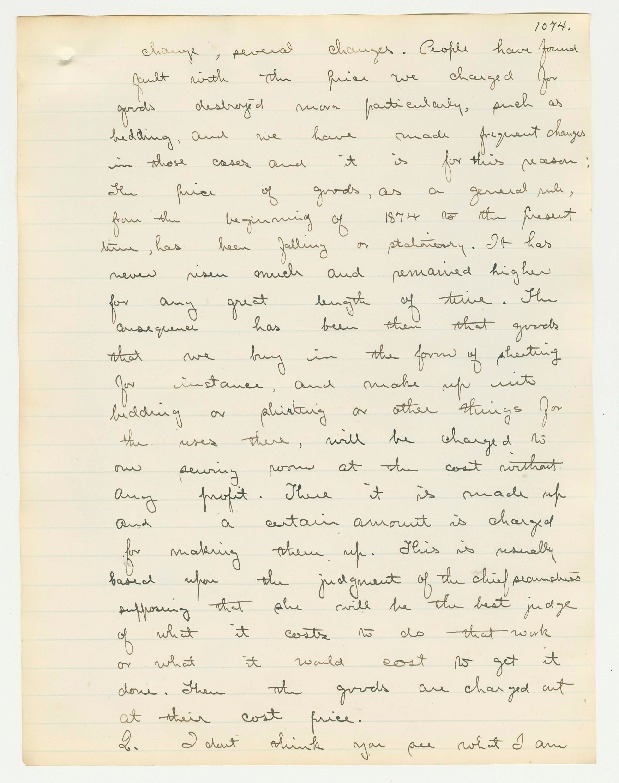 1074.
change, several changes. People have found
fault with the price we charged for
goods destroyed more particularly, such as
bedding, and we have made frequent changes
in those cases and it is for this reason:
The price of goods, as a general rule,
from the beginning of 1874 to the present
time, has been falling or stationery. It has
never risen much and remained higher
for any great length of time. The
consequence has been then that goods
that we buy in the form of sheeting
for instance, and make up into
bedding or shirting or other things for
the uses there, will be charged to
our sewing room at the cost without
any profit. There it is made up
and a certain amount is charged
for making them up. This is usually
based upon the judgment of the chief seamstress
supposing that she will be the best judge
of what it costs to do that work
or what it would cost to get it
done. Then the goods are charged out
at their cost price.
Q. I don't think you see what I am